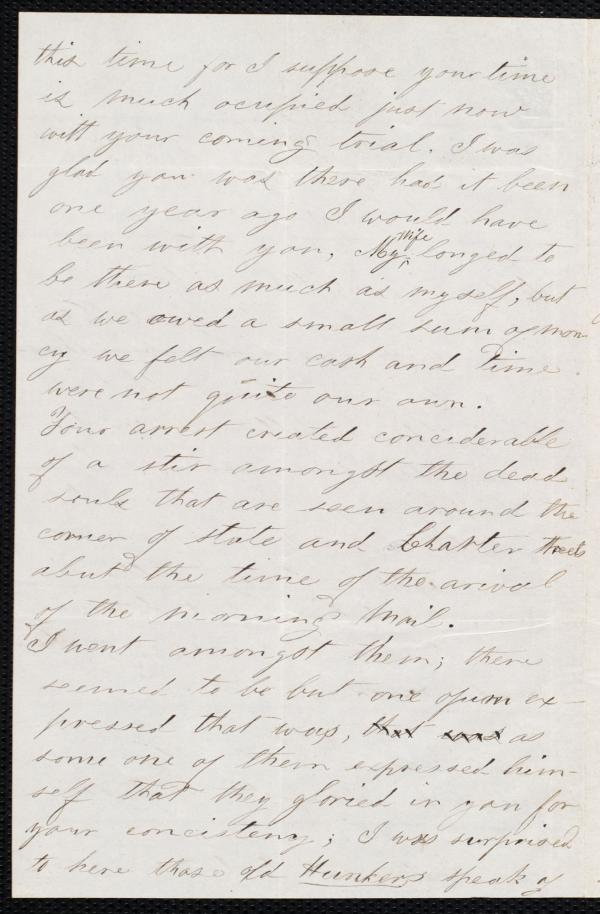 this time for I suppose your time
is much ocupied just now
with your coming trial. I was
glad you was there had it been
one year ago I would have
been with you, My Wife longed to
be there as much as myself, but
as we owed a small sum of mon-
ey we felt our cash and time
were not quite our own.
Your arrest created conciderable
of a stir amongst the dead
souls that are seen around the
corner of state and Charter streets
abut the time of the arival
of the morning Mail.
I went amongst them; there
seemed to be but one opinion ex-
pressed that was, that was as
some one of them expressed him-
self that they gloried in you for
your concisteny; I was surprised
to here those old Hunkers speak of